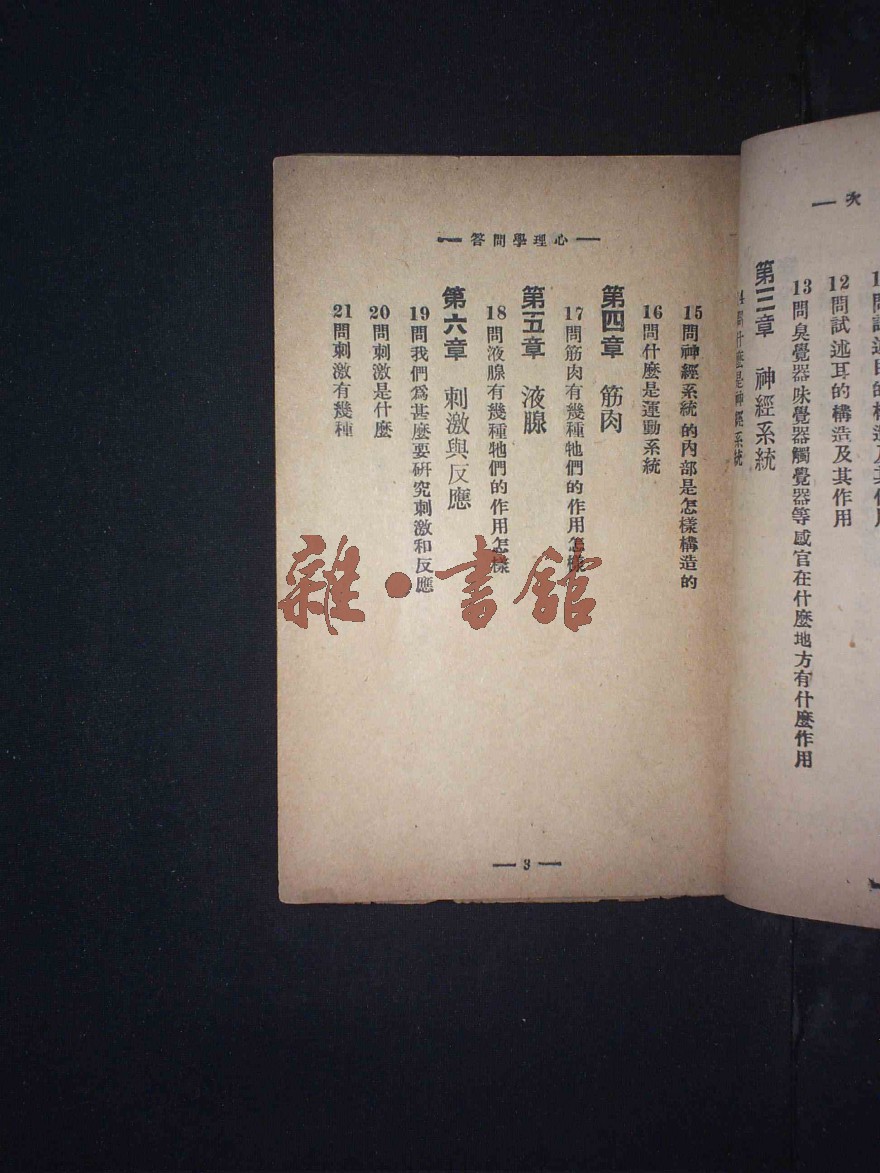 次
12問試述耳的構造及其作用
13問臭覺器味覺器觸覺器等感官在什麼地方有什麼作用
第三章 神經系統
14問什麼是神經系統
心理學問答
15問神經系統的內部是怎樣構造的
16問什麼是運動系統
第四章 筋肉
17問筋肉有幾種牠們的作用怎樣
第五章 液腺
18問液腺有幾種牠們的作用怎樣
第六章 刺激與反應
19問我們爲甚麼要研究刺激和反應
20問刺激是什麼
21問刺激有幾種
3
雜·書館